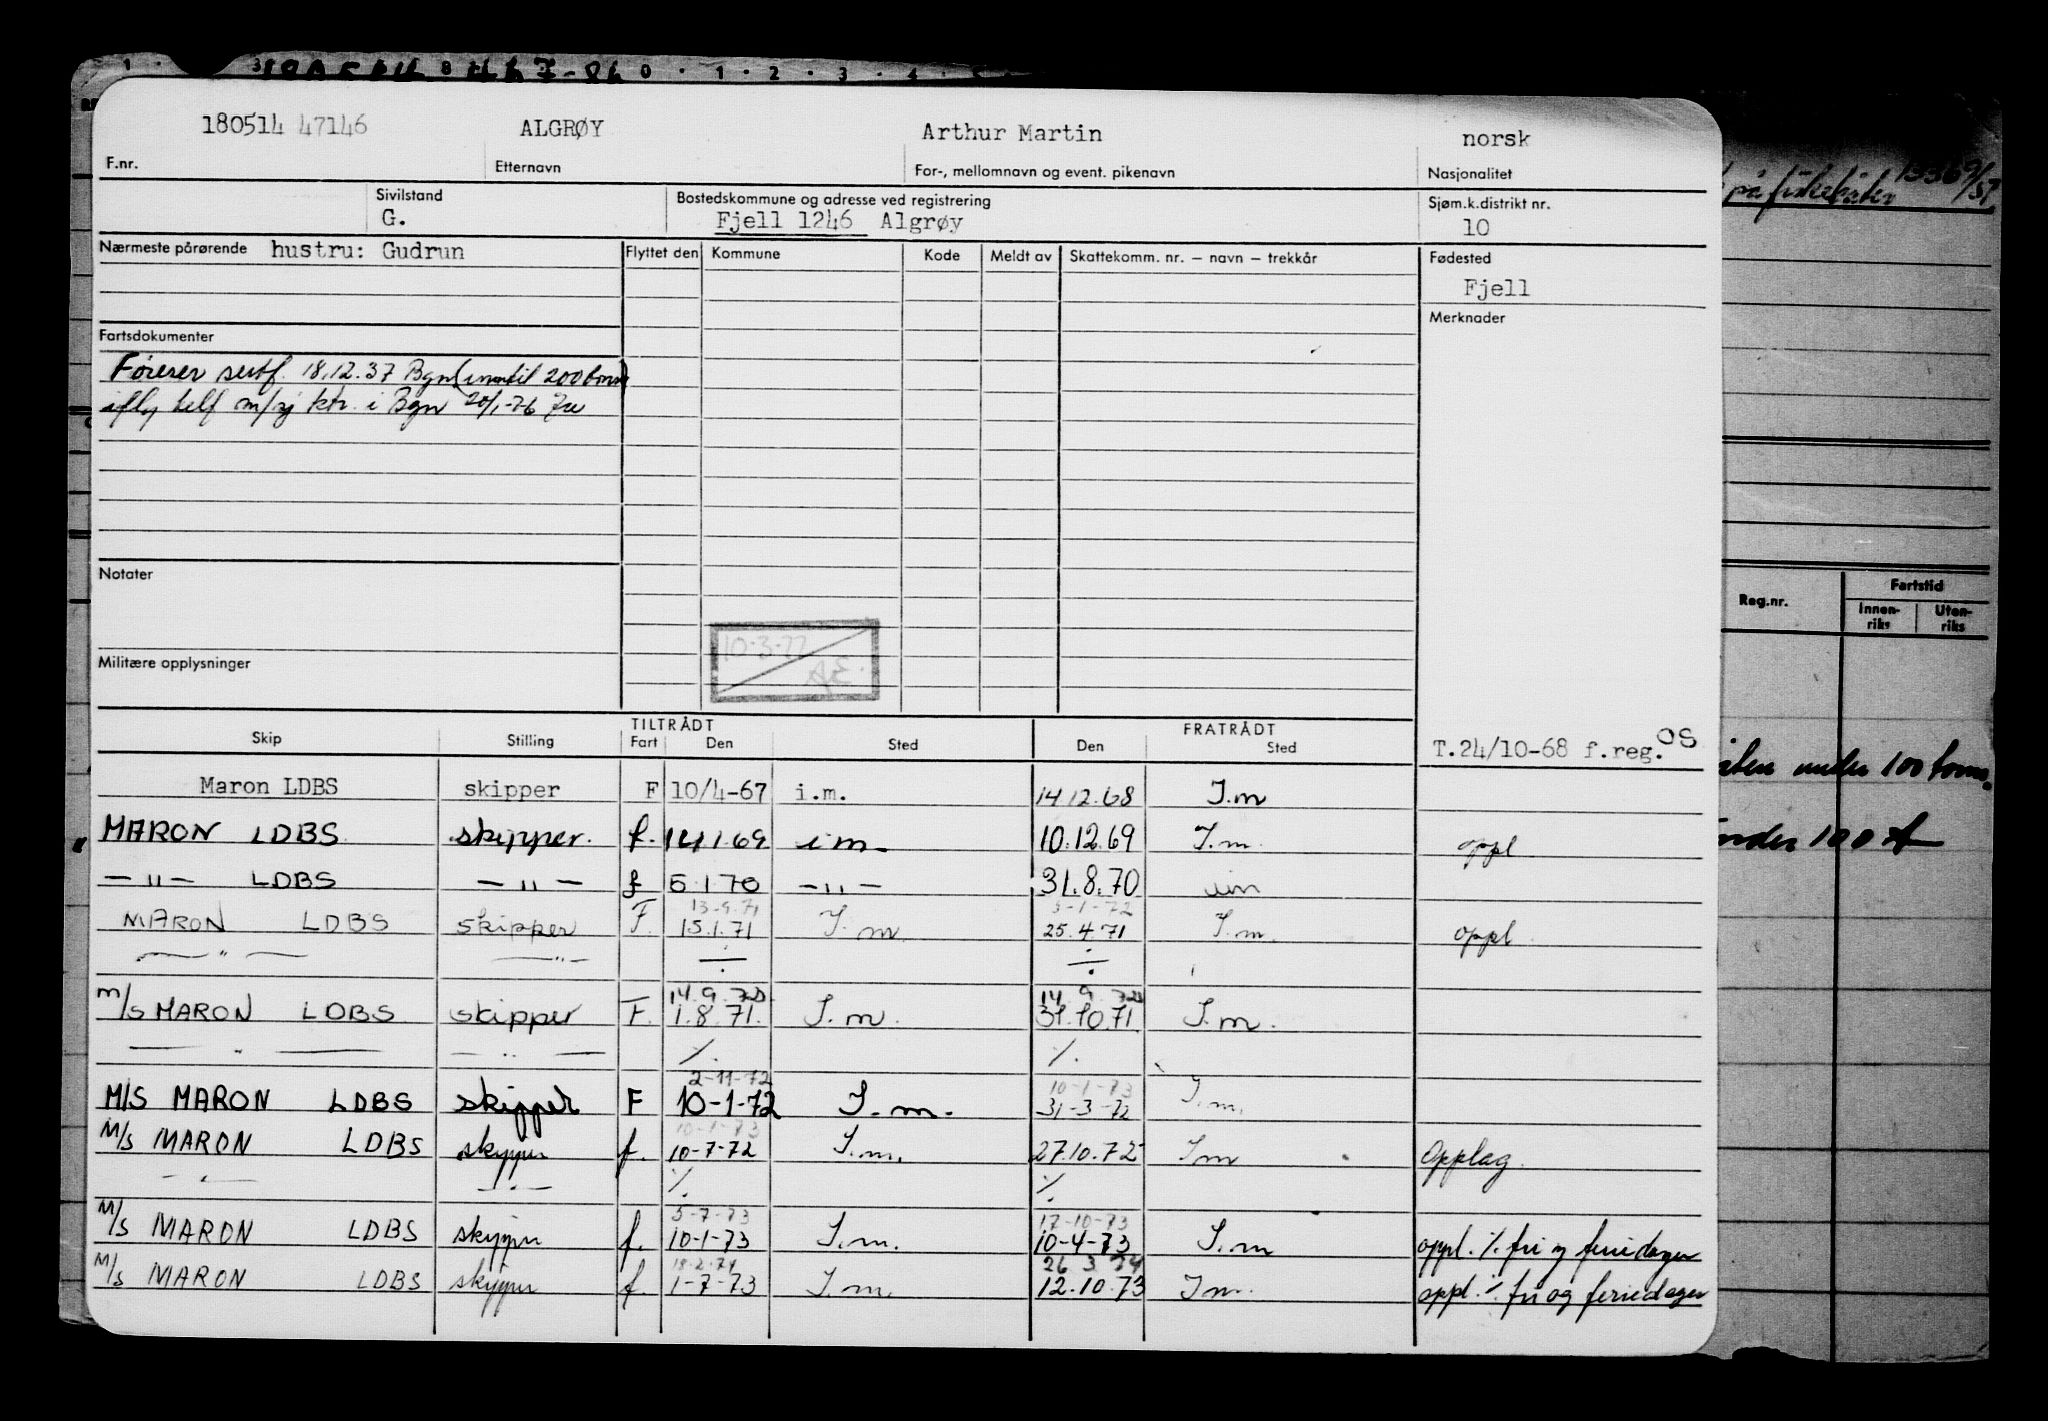 180514 47146 ALGRØY Arthur Martin norsk
F.nr. Etternavn For-, mellomnavn og event. pikenavn Nasjonalitet
Sivilstand Bostedskommune og adresse ved registrering Sjøm.k.distrikt nr.
G. Fjell 1246 Algrøy 10
Nærmeste pårørende hustru: Gudrun Flyttet den Kommune Kode Meldt av Skattekomm. nr. – navn – trekkår Fødested
Fjell
Merknader
Fartsdokumenter
Fører sertf. 18.12.37 Bgn (inntil 200 tonn)
iflg telf m/sj ktr. i Bgn 20/1-76
Notater
10-3-77
AE.
Militære opplysninger
TILTRÅDT FRATRÅDT
Skip Stilling Fart Den Sted Den Sted T.24/10-68 f.reg. OS
Maron LDBS skipper F 10/4-67 i.m. 14.12.68 I.m
MARON LDBS skipper. f. 14.1.69 i m 10.12.69 I.m. oppl
— " — LDBS — " — f 5.1.70 — " — 31.8.70 im
13-9-71 3-1-72
MARON LDBS skipper F. 15.1.71 I.m 25.4.71 I.m. oppl
— " — — " — ÷ ÷
14.9.72 14.9.72
M/S MARON LDBS skipper F. 1.8.71. I.m. 31.10.71 I.m.
— " — — " — ·/. ·/.
2-11-72 10-1-73
M/S MARON LDBS skipper F 10-1-72 I.m. 31-3-72 I.m.
10-1-73
M/S MARON LDBS skipper f. 10-7-72 I.m. 27.10.72 Im Opplag.
— " — — " — ·/. ·/.
5-7-73 17-10-73
M/S MARON LDBS skipper f. 10-1-73 I.m. 10-4-73 I.m oppl. ·/. fri og feriedager
18.2.74 26 3 74
M/S MARON LDBS skipper f. 1-7-73 I.m. 12.10.73 Im. oppl. ·/. fri og feriedager
13369/57
Reg.nr. Fartstid
Innen-riks Uten-riks
under 100 tonn.
under 100 t